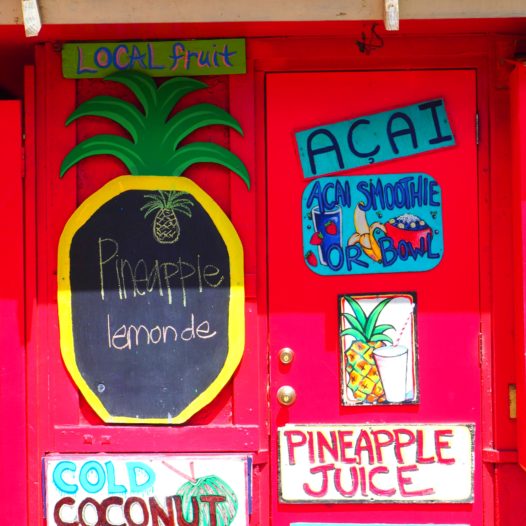 LOCAL fruit
AÇAI
AÇAI SMOOTHIE
OR BOWL
Pineapple
lemonde
PINEAPPLE
JUICE
COLD
COCONUT